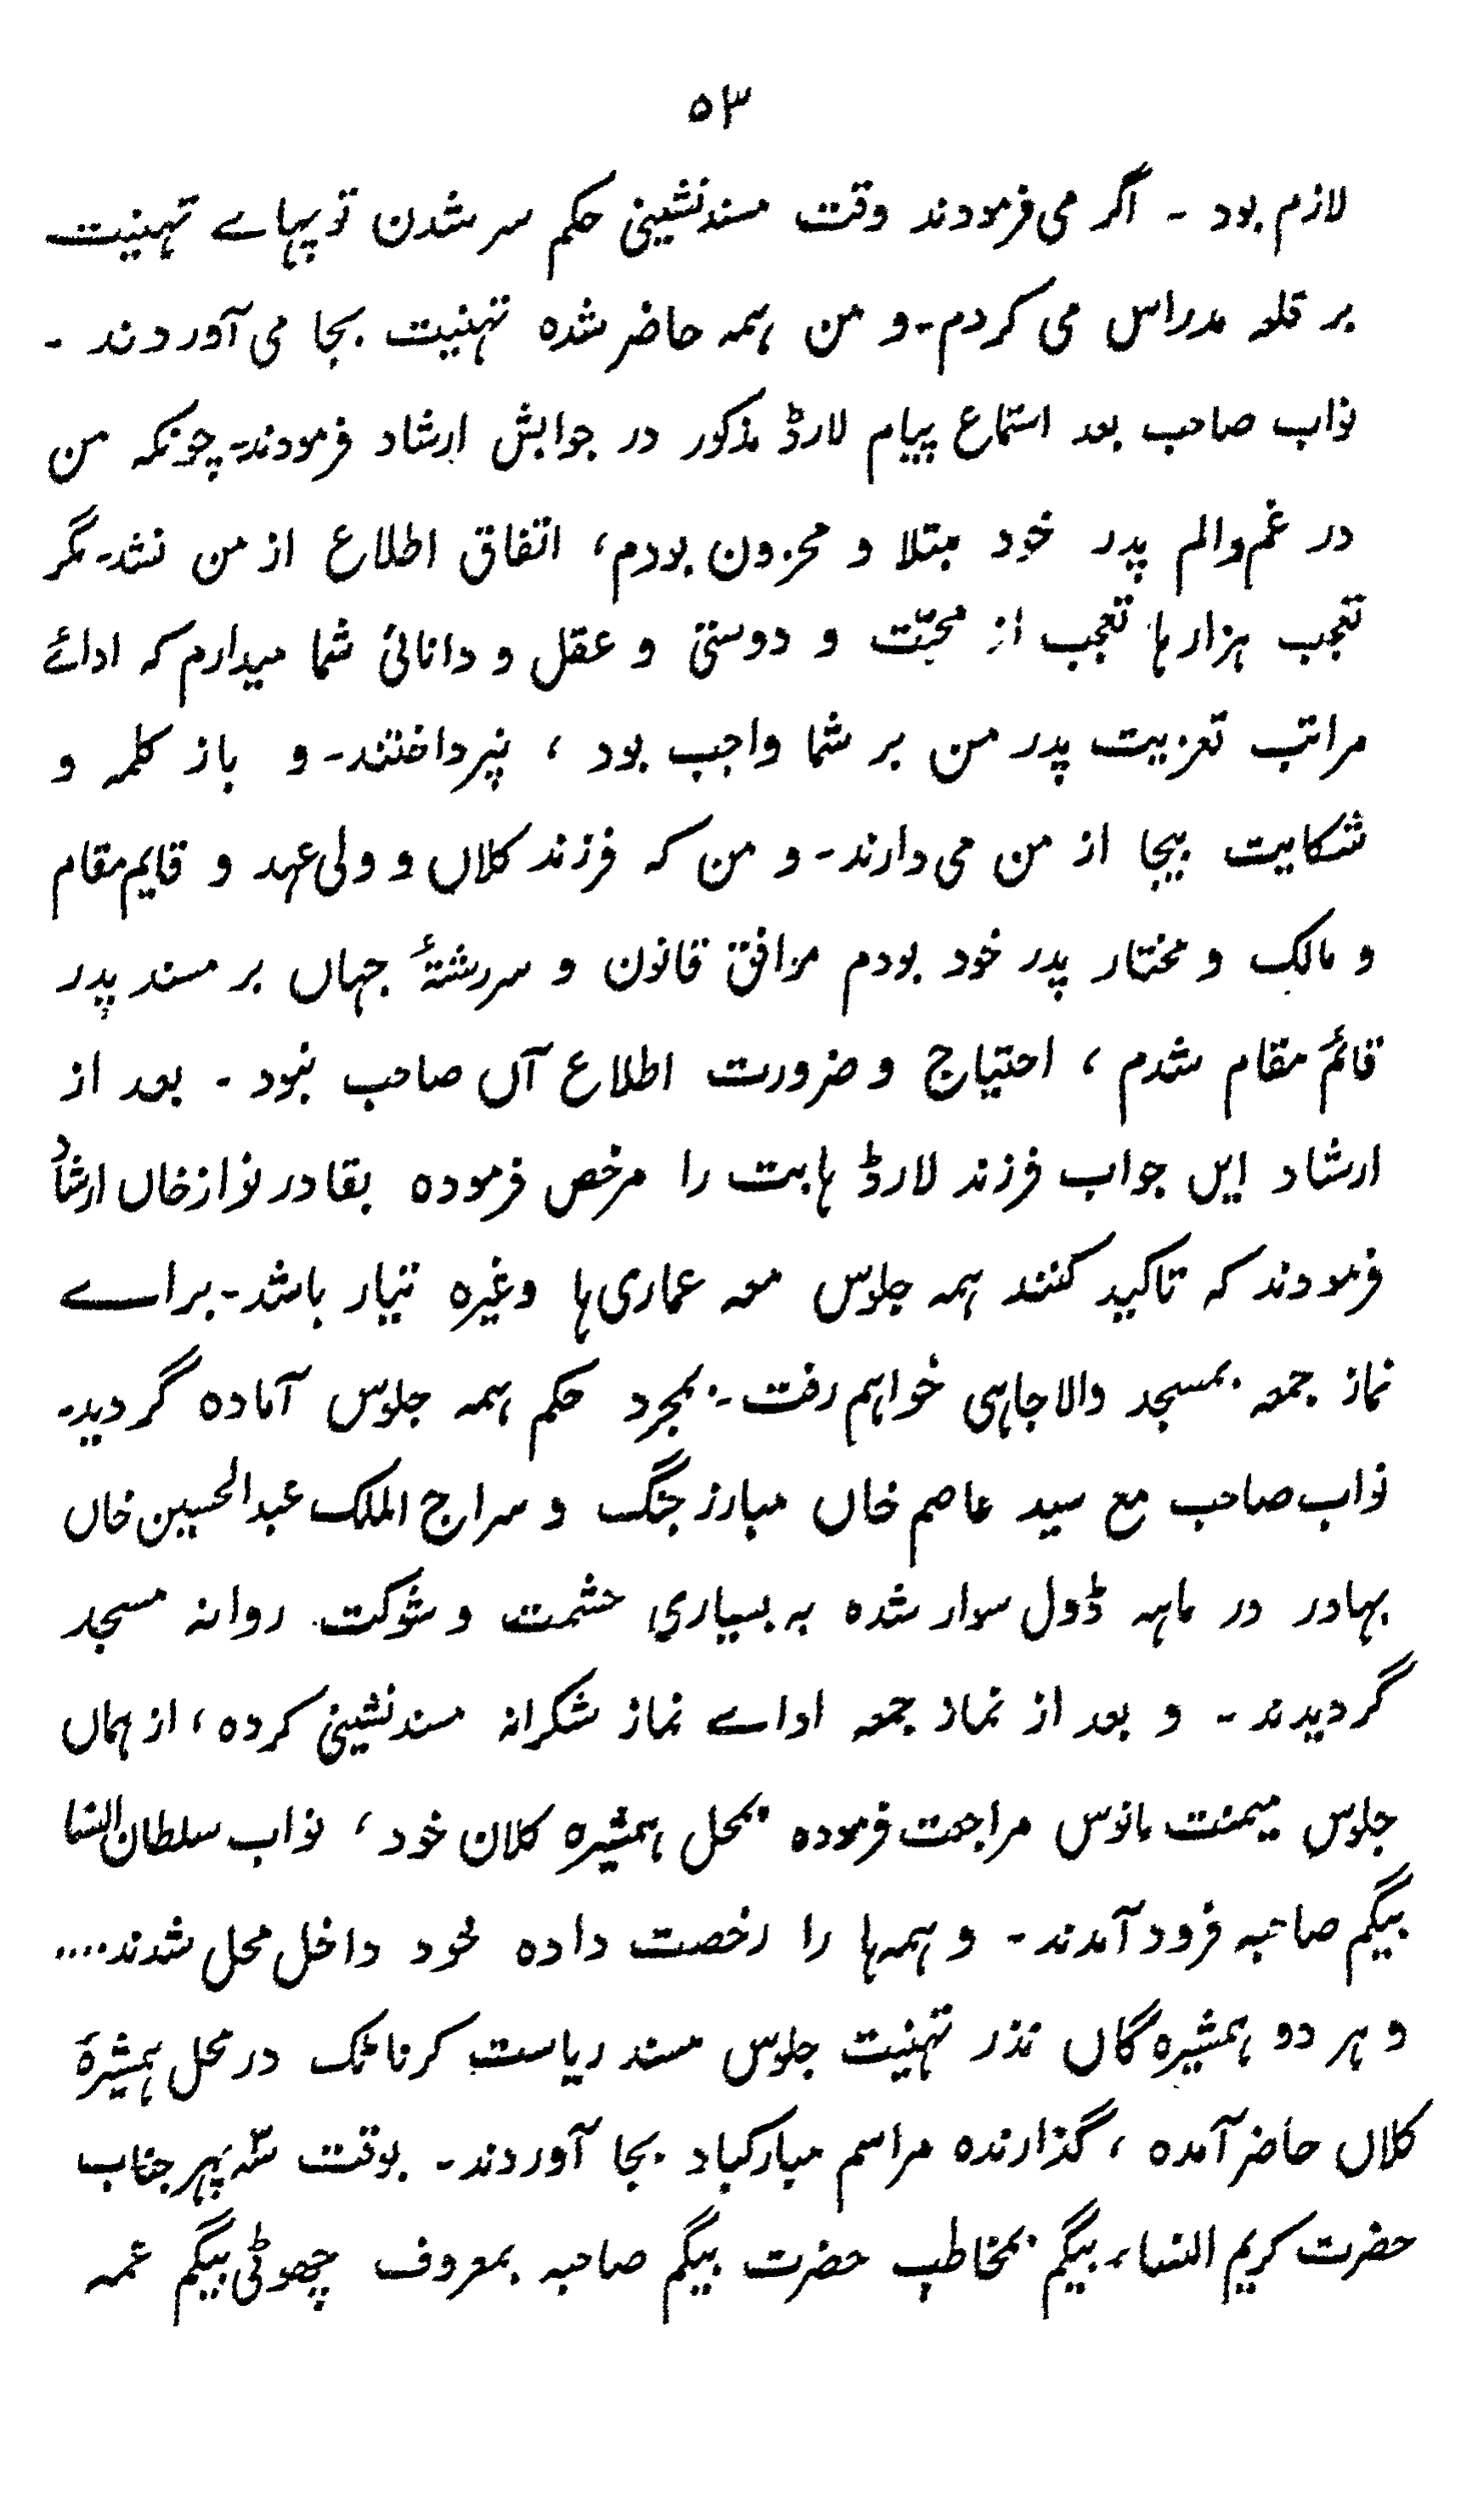 ۵۳
لازم بود ۔ اگر می فرمودند وقت مسندنشینی حکم سر شدن توپہاے تہنیت
بر قلعہ مدراس می کردم۔ و من ہمہ حاضر شدہ تہنیت بجا می آوردند ۔
نواب صاحب بعد استماع پیام لارڈ مذکور در جوابش ارشاد فرمودند۔ چونکہ من
در غم والم پدر خود مبتلا و محزون بودم، اتفاق اطلاع از من نشد۔ مگر
تعجب ہزارہا تعجب از محبّت و دوستی و عقل و دانائی شما میدارم کہ ادائے
مراتب تعزیت پدر من بر شما واجب بود ، نپرداختند۔ و باز کلمہ و
شکایت بیجا از من می دارند۔ و من کہ فرزند کلاں و ولی عہد و قایم مقام
و مالک و مختار پدر خود بودم موافق قانون و سررشتۂ جہاں بر مسند پدر
قائم مقام شدم ، احتیاج و ضرورت اطلاع آں صاحب نبود ۔ بعد از
ارشاد ایں جواب فرزند لارڈ ہابت را مرخص فرمودہ بقادر نواز خاں ارشاد
فرمودند کہ تاکید کنند ہمہ جلوس معہ عماری ہا وغیرہ تیار باشد۔ براے
نماز جمعہ بمسجد والاجاہی خواہم رفت۔ بمجرد حکم ہمہ جلوس آمادہ گردید۔
نواب صاحب مع سید عاصم خاں مبارز جنگ و سراج الملک عبدالحسین خاں
بہادر در ماہہ ڈول سوار شدہ بہ بسیاری حشمت و شوکت روانہ مسجد
گردیدند ۔ و بعد از نماز جمعہ اداے نماز شکرانہ مسندنشینی کردہ ، از ہماں
جلوس میمنت مانوس مراجعت فرمودہ بمحل ہمشیرہ کلان خود ، نواب سلطان النسا
بیگم صاحبہ فرود آمدند ۔ و ہمہا را رخصت دادہ خود داخل محل شدند ....
و ہر دو ہمشیرہ گاں نذر تہنیت جلوس مسند ریاست کرناٹک در محل ہمشیرۂ
کلاں حاضر آمدہ ، گذارندہ مراسم مبارکباد بجا آوردند ۔ بوقت سہ پہر جناب
حضرت کریم النساء بیگم بمخاطب حضرت بیگم صاحبہ بمعروف چھوٹی بیگم عمہ